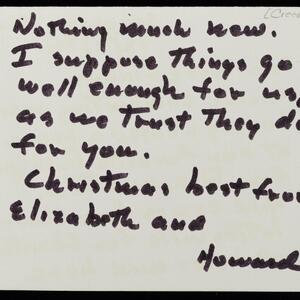 Nothing much new.
I suppose things go
well enough for us,
as we trust they do
for you.
Christmas best from
Elizabeth and
Howard